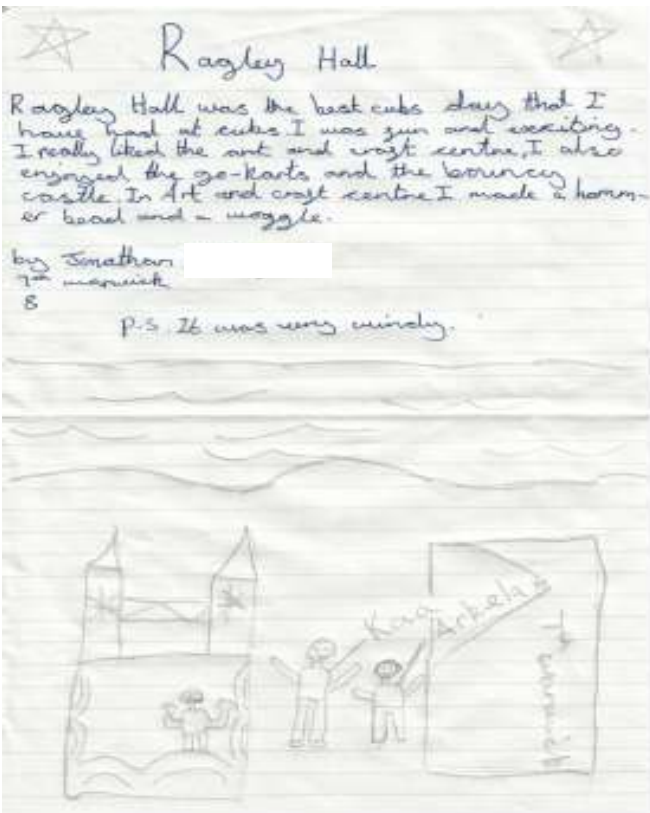 Ragley Hall
Ragley Hall was the best cubs day that I
have had at cubs I was fun and exciting.
I really liked the art and craft centre, I also
enjoyed the go-karts and the bouncy
castle. In Art and craft centre I made a hamm-
er bead and a woggle.
by Jonathan
7th warwick
8
P.S. It was very windy.
Kaa
Arkela
7th warwick